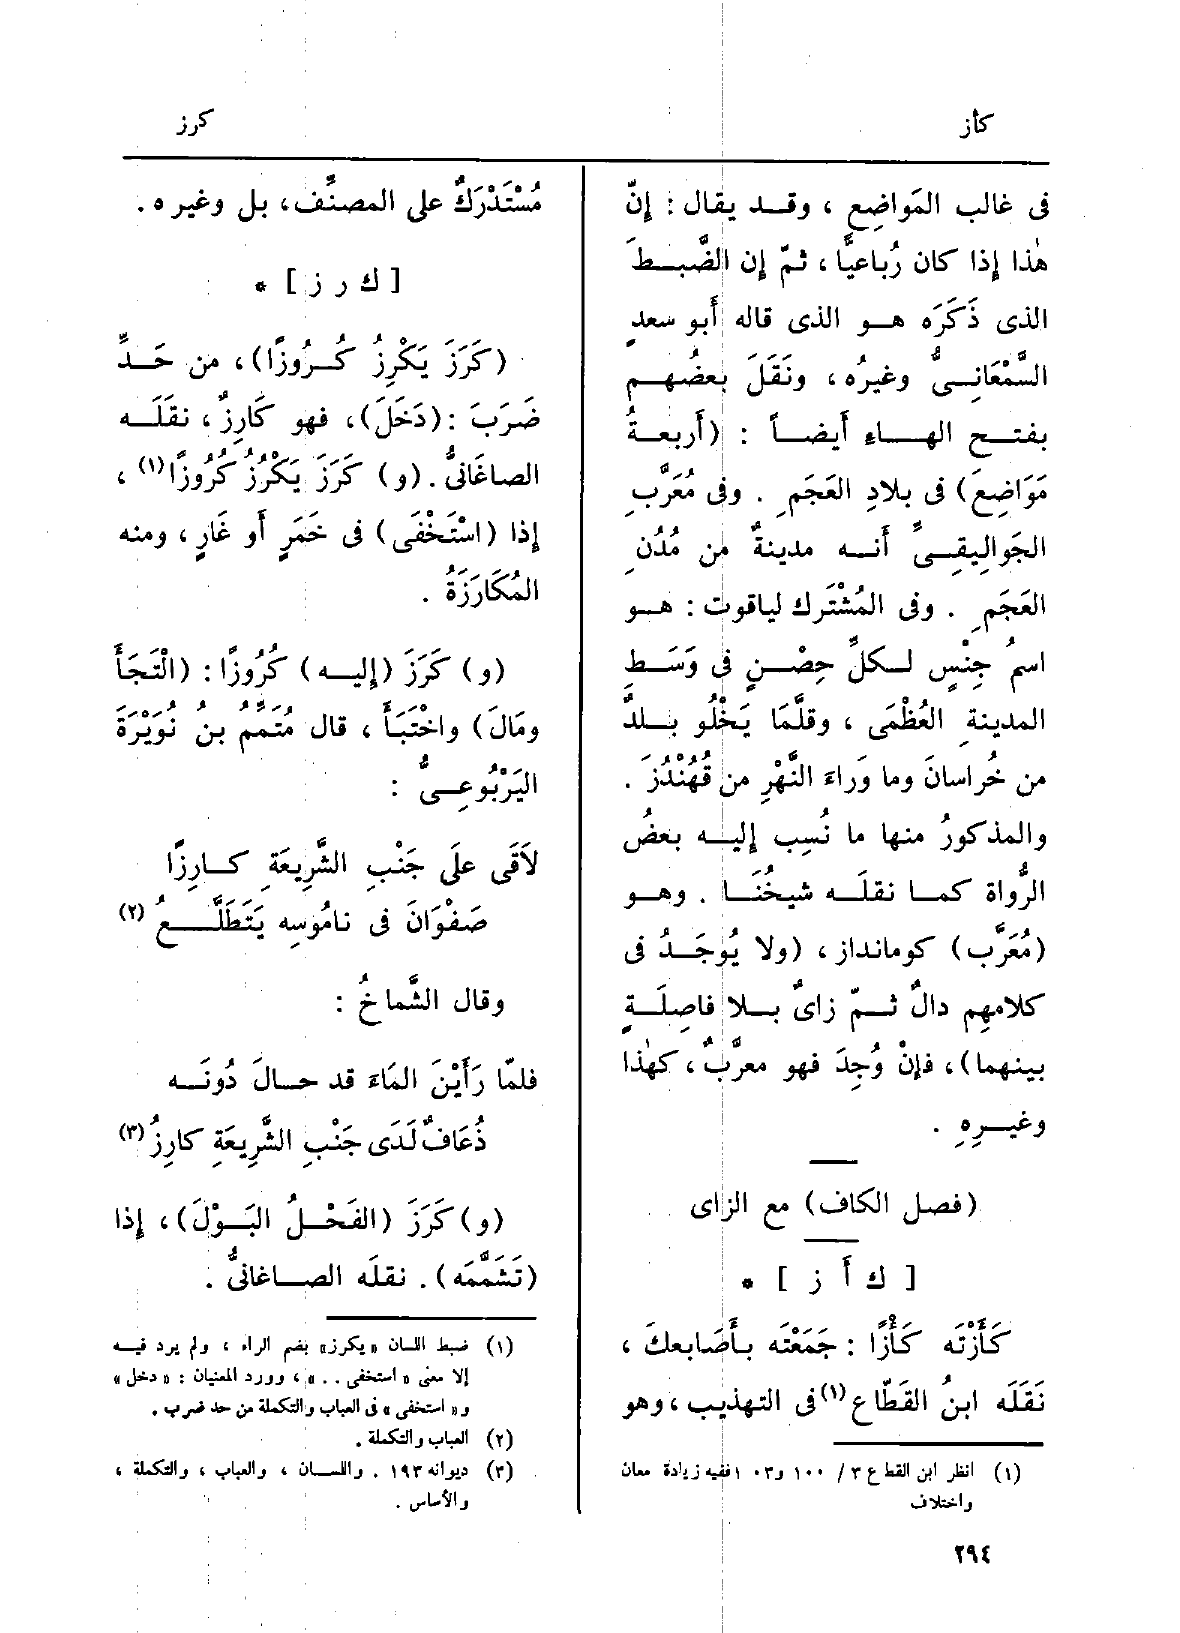 كأز
كرز
فى غالب المَواضِعِ ، وقــد يقال : إنّ
هٰذا إذا كان رُباعيًّا ، ثمّ إن الضَّبــطَ
الذى ذَكَرَه هــو الذى قاله أَبو سعدٍ
السَّمْعَانِــىُّ وغيرُه ، ونَقَلَ بعضُهــم
بفتــح الهــاءِ أَيضــاً : (أَربعــةُ
مَوَاضِعَ) فى بلادِ العَجَمِ . وفى مُعَرَّبِ
الجَوالِيقِــىِّ أَنــه مدينةٌ من مُدُنِ
العَجَمِ . وفى المُشْتَرك لياقوت : هــو
اسمُ جِنْسٍ لــكلِّ حِصْــنٍ فى وَسَــطِ
المدينةِ العُظْمَى ، وقلَّمَا يَخْلُو بــلدٌ
من خُراسانَ وما وَراءَ النَّهْرِ من قُهُنْدُزَ .
والمذكورُ منها ما نُسِب إليــه بعضُ
الرُّواة كمــا نقلَــه شيخُنَــا . وهــو
(مُعَرَّب) كومانداز ، (ولا يُوجَــدُ فى
كلامهِم دالٌ ثــمّ زاىٌ بــلا فاصِلَــةٍ
بينهما) ، فإنْ وُجِدَ فهو معرَّبٌ ، كهٰذا
وغيــرِهِ .
(فصل الكاف) مع الزاى
[ ك أ ز ] *
كَأَزْتُه كَأْزًا : جَمَعْتُه بأَصَابعكَ ،
نَقَلَه ابنُ القَطّاع (١) فى التهذيب ، وهو
(١) انظر ابن القطاع ٣ / ١٠٠ و١٠٣ ففيه زيادة معان
واختلاف
مُسْتَدْرَكٌ على المصنِّف ، بل وغيره .
[ ك ر ز ] *
(كَرَزَ يَكْرِزُ كُــرُوزًا) ، من حَــدِّ
ضَرَبَ : (دَخَلَ) ، فهو كَارِزٌ ، نقَلَــه
الصاغَانىُّ . (و) كَرَزَ يَكْرُزُ كُرُوزًا (١) ،
إذا (اسْتَخْفَى) فى خَمَرٍ أَو غَارٍ ، ومنه
المُكَارَزَةُ .
(و) كَرَزَ (إليــه) كُرُوزًا : (الْتَجَأَ
ومَالَ) واخْتَبَأَ ، قال مُتَمِّمُ بنُ نُوَيْرَةَ
اليَرْبُوعِــىُّ :
لاَقَى علَى جَنْبِ الشَّرِيعَةِ كــارِزًا
صَفْوَانَ فى نامُوسِه يَتَطَلَّــعُ (٢)
وقال الشَّماخُ :
فلمّا رَأَيْنَ المَاءَ قد حــالَ دُونَــه
ذُعَافٌ لَدَى جَنْبِ الشَّرِيعَةِ كارِزُ (٣)
(و) كَرَزَ (الفَحْــلُ البَــوْلَ) ، إذا
(تَشَمَّمَه) . نقلَه الصــاغانىُّ .
(١) ضبط اللسان «يكرز» بضم الراء ، ولم يرد فيــه
إلا معنى « استخفى . . » ، وورد المعنيان : « دخل »
و« استخفى » فى العباب والتكملة من حد ضرب .
(٢) العباب والتكملة .
(٣) ديوانه ١٩٣ . واللســان ، والعباب ، والتكملة ،
والأساس .
٢٩٤